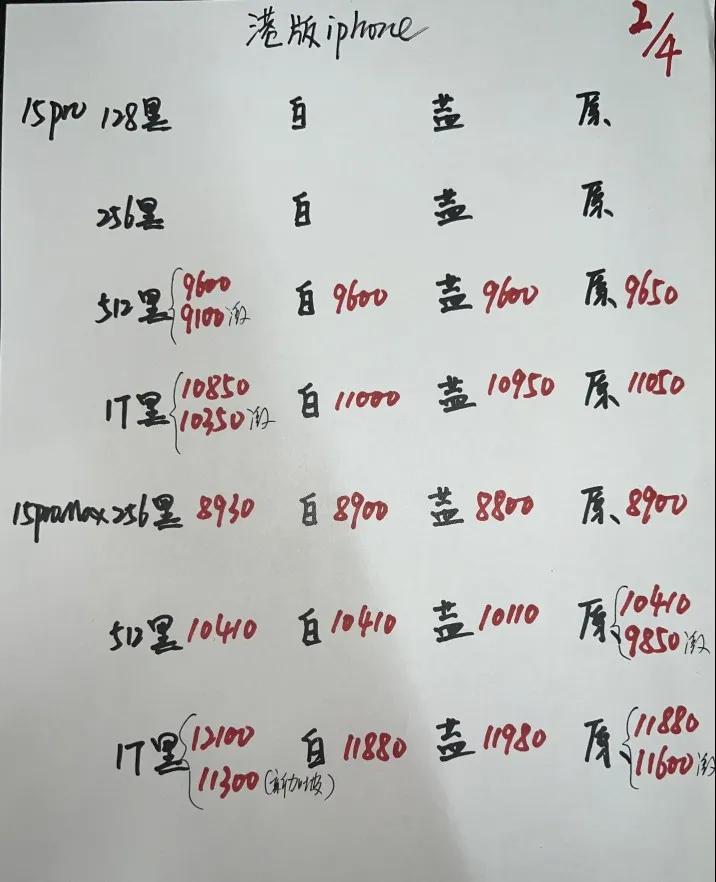 港版iphone 2/4
15pro 128黑 白 蓝 原
256黑 白 蓝 原
512黑 9600 白 9600 蓝 9600 原 9650
9100 激
1T黑 10850 白 11000 蓝 10950 原 11050
10350 激
15proMax 256黑 8930 白 8900 蓝 8800 原 8900
512黑 10410 白 10410 蓝 10110 原 10410
9850 激
1T黑 12100 白 11880 蓝 11980 原 11880
11300 (新加坡) 11600 激